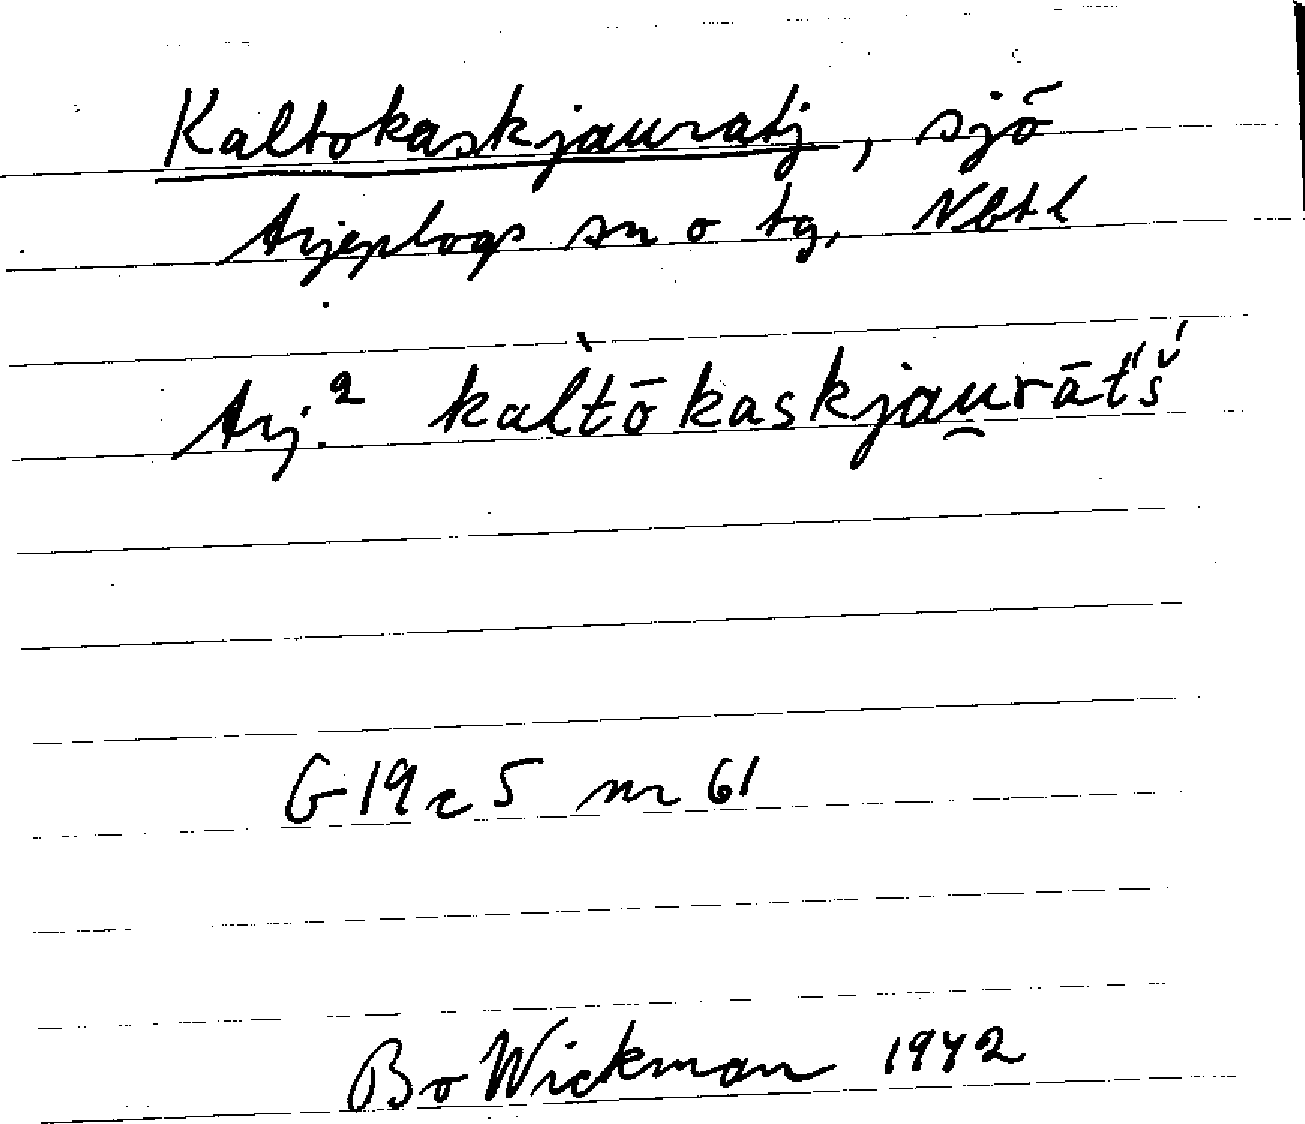 Kaltokaskjauratj, sjö
Arjeplogs sn o tg, Nbtl
Arj.² kal̀tōkaskjau̯rāt́'š́
G 19 c 5 nr 61
Bo Wickman 1942